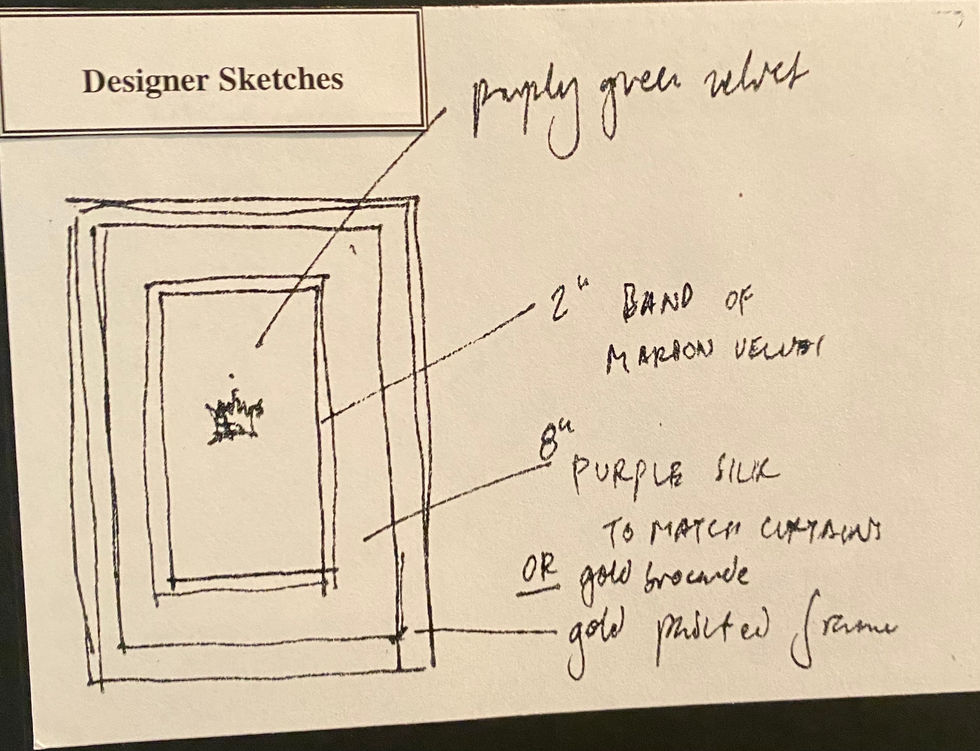 Designer Sketches
purply green velvet
2" BAND OF
MAROON VELVET
8"
PURPLE SILK
TO MATCH CURTAINS
OR gold brocade
gold painted frame